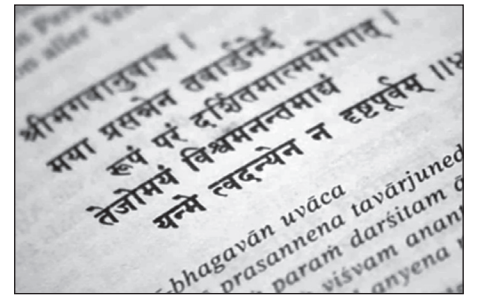 श्रीभगवानुवाच ।
मया प्रसन्नेन तवार्जुनेदं
रूपं परं दर्शितमात्मयोगात् ।
तेजोमयं विश्वमनन्तमाद्यं
यन्मे त्वदन्येन न दृष्टपूर्वम् ॥
-bhagavān uvāca
prasannena tavārjuned
paraṁ darśitam ā
viśvam anant
anyena